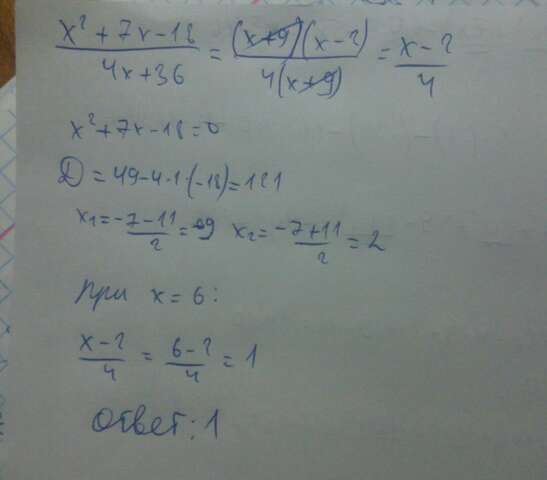 x² + 7x - 18 / 4x + 36 = (x+9)(x-2) / 4(x+9) = x-2 / 4
x² + 7x - 18 = 0
D = 49 - 4·1·(-18) = 121
x₁ = -7-11 / 2 = -9 x₂ = -7+11 / 2 = 2
При x = 6:
x-2 / 4 = 6-2 / 4 = 1
Ответ: 1